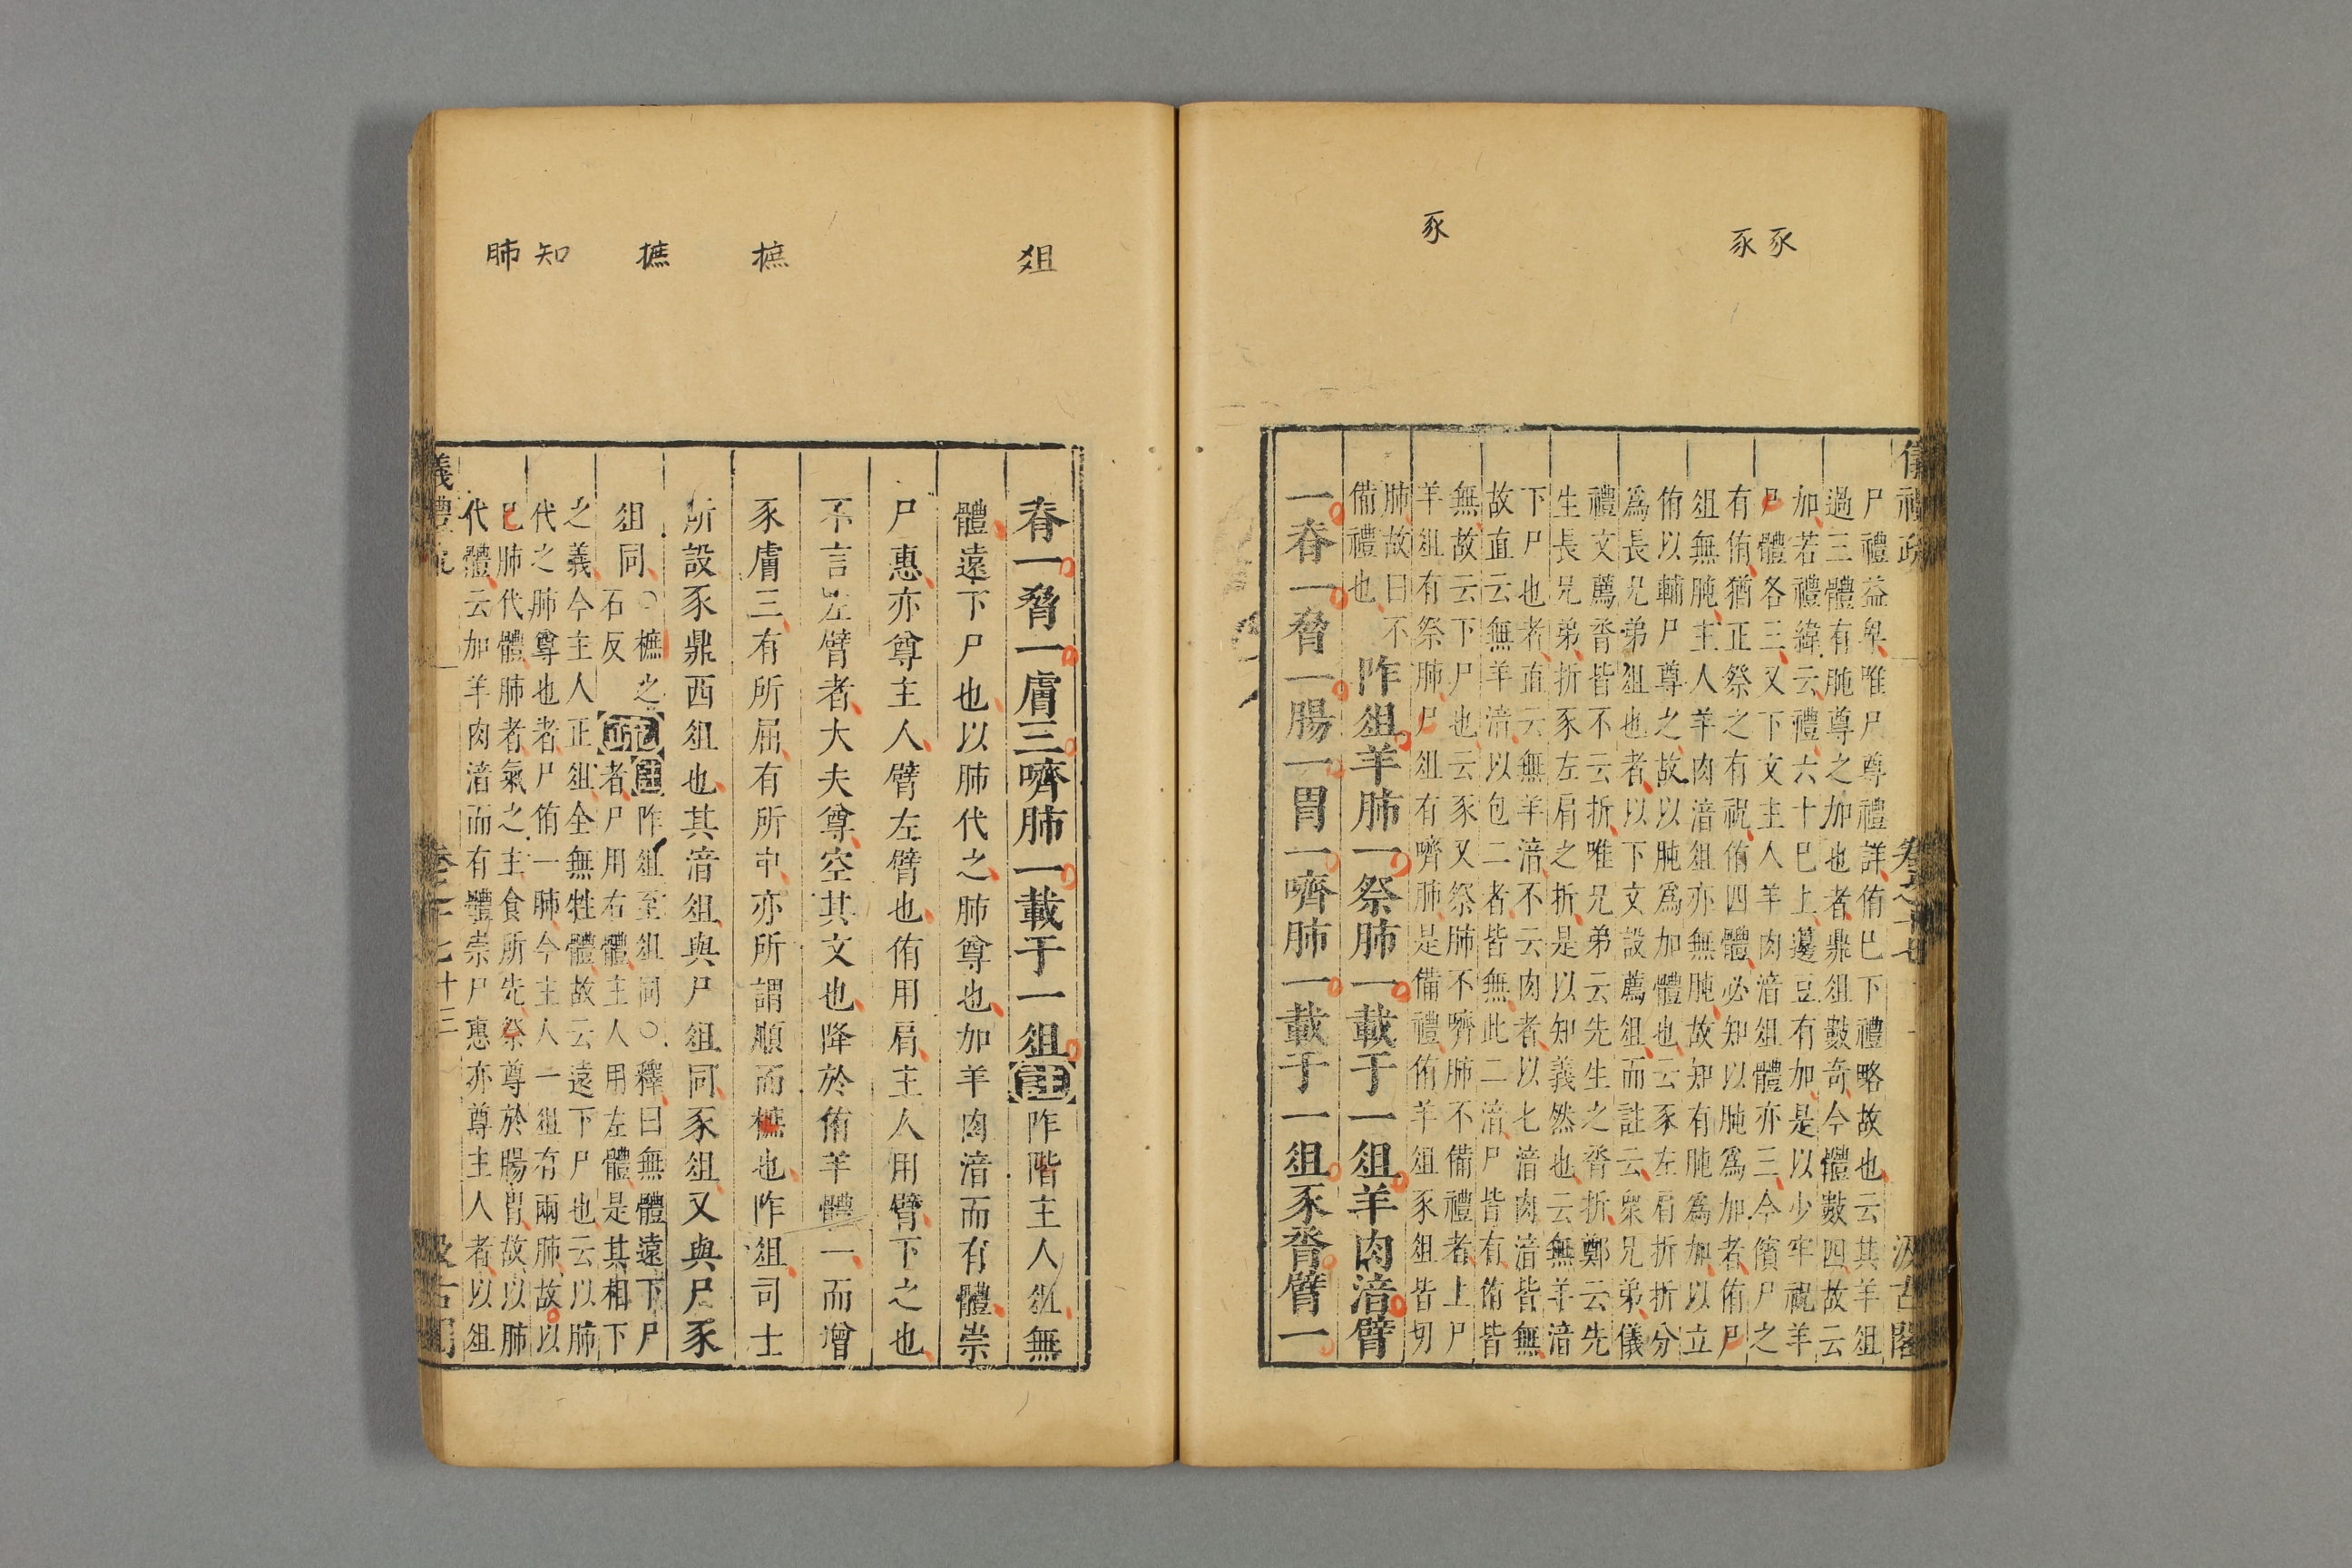 豕豕
豕
儀禮疏 卷之十七 汲古閣
尸禮益卑唯尸尊禮詳侑巳下禮略故也云其羊俎
過三體有肫尊之加也者鼎俎數奇今體數四故云
加若禮緯云禮六十巳上籩豆有加是以少牢祝羊
尸體各三又下文主人羊肉湇俎體亦三今儐尸之
有侑猶正祭之有祝侑四體必知以肫爲加者侑尸
俎無肫主人羊肉湇俎亦無肫故知有肫爲加以立
侑以輔尸尊之故以肫爲加體也云豕左肩折折分
爲長兄弟俎也者以下文設薦俎而註云衆兄弟儀
禮文薦脀皆不云折唯兄弟云先生之脀折鄭云先
生長兄弟折豕左肩之折是以知義然也云無羊湇
下尸也者直云無羊湇不云肉者以匕湇肉湇皆無
故直云無羊湇以包二者皆無此二湇尸皆有侑皆
無故云下尸也云豕又祭肺不嚌肺不備禮者上尸
羊俎有祭肺尸俎有嚌肺是備禮侑羊俎豕俎皆切
肺故曰不
備禮也
阼俎羊肺一祭肺一載于一俎羊肉湇臂
一脊一脅一腸一胃一嚌肺一載于一俎豕脀臂一
俎
樜
樜
知
肺
脊一脅一膚三嚌肺一載于一俎註阼階主人俎無
體遠下尸也以肺代之肺尊也加羊肉湇而有體崇
尸惠亦尊主人臂左臂也侑用肩主人用臂下之也
不言左臂者大夫尊空其文也降於侑羊體一而增
豕膚三有所屈有所申亦所謂順而樜也阼俎司士
所設豕鼎西俎也其湇俎與尸俎同豕俎又與尸豕
俎同○樜之
石反
疏註阼俎至俎同○釋曰無體遠下尸
者尸用右體主人用左體是其相下
之義今主人正俎全無牲體故云遠下尸也云以肺
代之肺尊也者尸侑一肺今主人一俎有兩肺故以
巳肺代體肺者氣之主食所先祭尊於腸胃故以肺
代體云加羊肉湇而有體崇尸惠亦尊主人者以俎